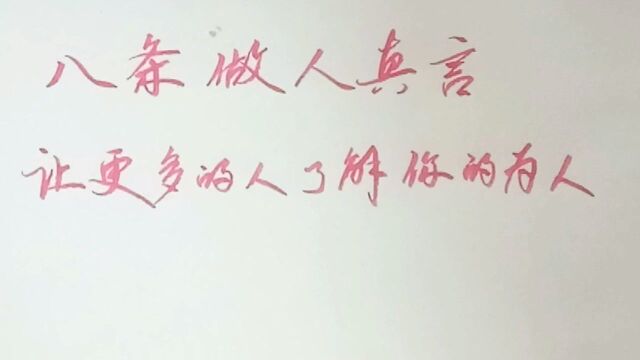 八条做人真言
让更多的人了解你的为人